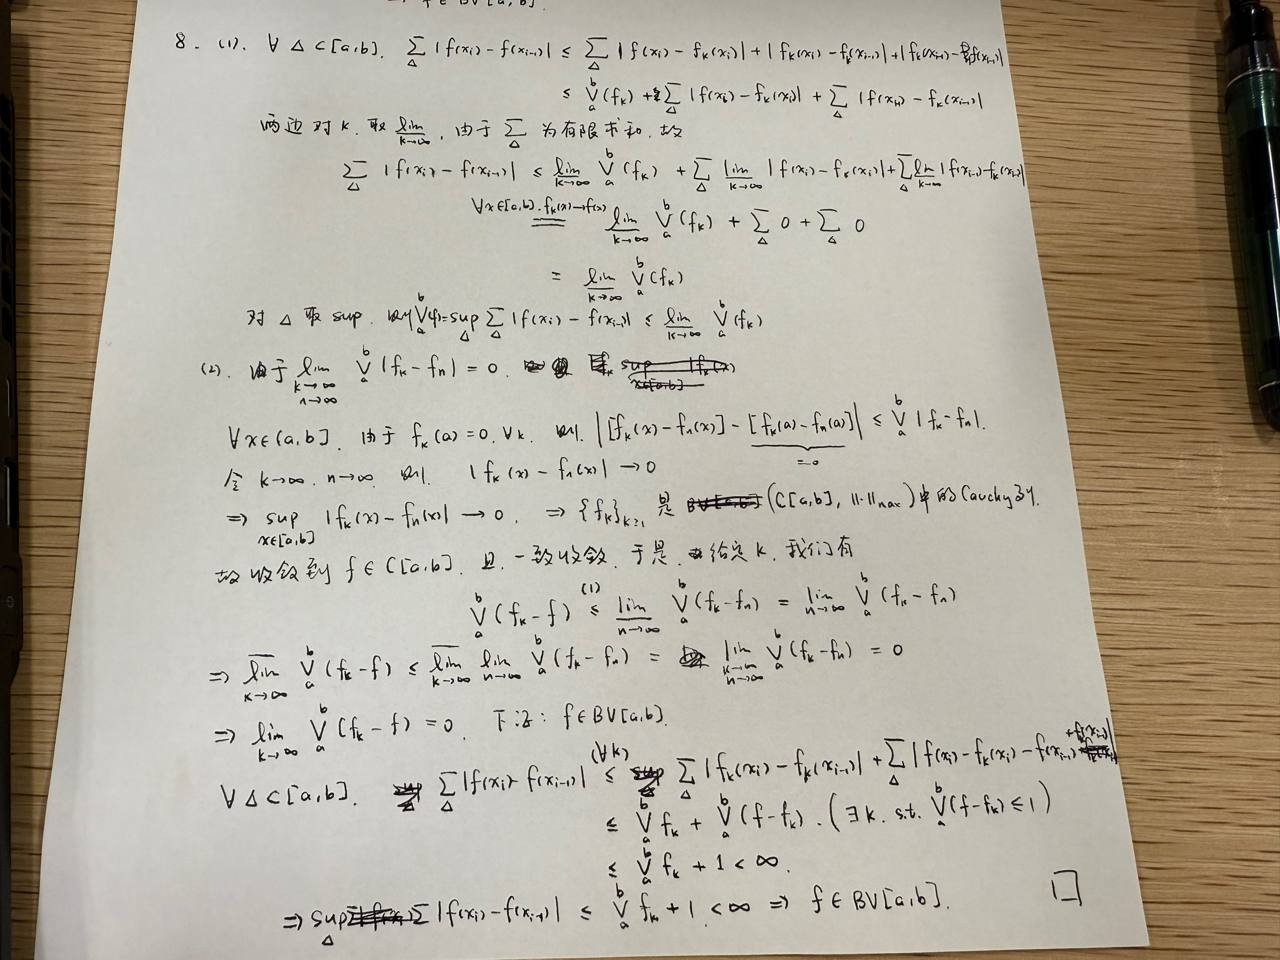 ⇒ f ∈ BV[a,b].
8. (1). ∀ Δ ⊂ [a,b]. ∑_Δ |f(x_i) - f(x_{i-1})| ≤ ∑_Δ |f(x_i) - f_k(x_i)| + |f_k(x_i) - f_k(x_{i-1})| + |f_k(x_{i-1}) - f(x_{i-1})|
≤ V_a^b(f_k) + ∑_Δ |f(x_i) - f_k(x_i)| + ∑_Δ |f(x_{i-1}) - f_k(x_{i-1})|
两边对 k 取 \underline{lim}_{k→∞}, 由于 ∑_Δ 为有限求和, 故
∑_Δ |f(x_i) - f(x_{i-1})| ≤ \underline{lim}_{k→∞} V_a^b(f_k) + ∑_Δ \underline{lim}_{k→∞} |f(x_i) - f_k(x_i)| + ∑_Δ \underline{lim}_{k→∞} |f(x_{i-1}) - f_k(x_{i-1})|
∀x∈[a,b]. f_k(x)→f(x) = \underline{lim}_{k→∞} V_a^b(f_k) + ∑_Δ 0 + ∑_Δ 0
= \underline{lim}_{k→∞} V_a^b(f_k)
对 Δ 取 sup. 则 V_a^b(f) = sup_Δ ∑_Δ |f(x_i) - f(x_{i-1})| ≤ \underline{lim}_{k→∞} V_a^b(f_k)
(2). 由于 lim_{k→∞, n→∞} V_a^b |f_k - f_n| = 0.
∀x∈(a,b]. 由于 f_k(a) = 0, ∀k. 则 |[f_k(x) - f_n(x)] - [f_k(a) - f_n(a)]| ≤ V_a^b |f_k - f_n|.
=0
令 k→∞. n→∞. 则 |f_k(x) - f_n(x)| → 0
⇒ sup_{x∈[a,b]} |f_k(x) - f_n(x)| → 0. ⇒ {f_k}_{k≥1} 是 (C[a,b], ||·||_max) 中的 Cauchy 列.
故收敛到 f ∈ C[a,b]. 且一致收敛. 于是 给定 k. 我们有
V_a^b(f_k - f) ≤^{(1)} \underline{lim}_{n→∞} V_a^b(f_k - f_n) = lim_{n→∞} V_a^b(f_k - f_n)
⇒ \overline{lim}_{k→∞} V_a^b(f_k - f) ≤ \overline{lim}_{k→∞} lim_{n→∞} V_a^b(f_k - f_n) = lim_{k→∞, n→∞} V_a^b(f_k - f_n) = 0
⇒ lim_{k→∞} V_a^b(f_k - f) = 0. 下证: f ∈ BV[a,b].
∀ Δ ⊂ [a,b]. ∑_Δ |f(x_i) - f(x_{i-1})| ≤^{(∀k)} ∑_Δ |f_k(x_i) - f_k(x_{i-1})| + ∑_Δ |f(x_i) - f_k(x_i) - f(x_{i-1}) + f_k(x_{i-1})|
≤ V_a^b f_k + V_a^b(f - f_k). (∃ k. s.t. V_a^b(f - f_k) ≤ 1)
≤ V_a^b f_k + 1 < ∞.
⇒ sup_Δ ∑ |f(x_i) - f(x_{i-1})| ≤ V_a^b f_k + 1 < ∞ ⇒ f ∈ BV[a,b]. □